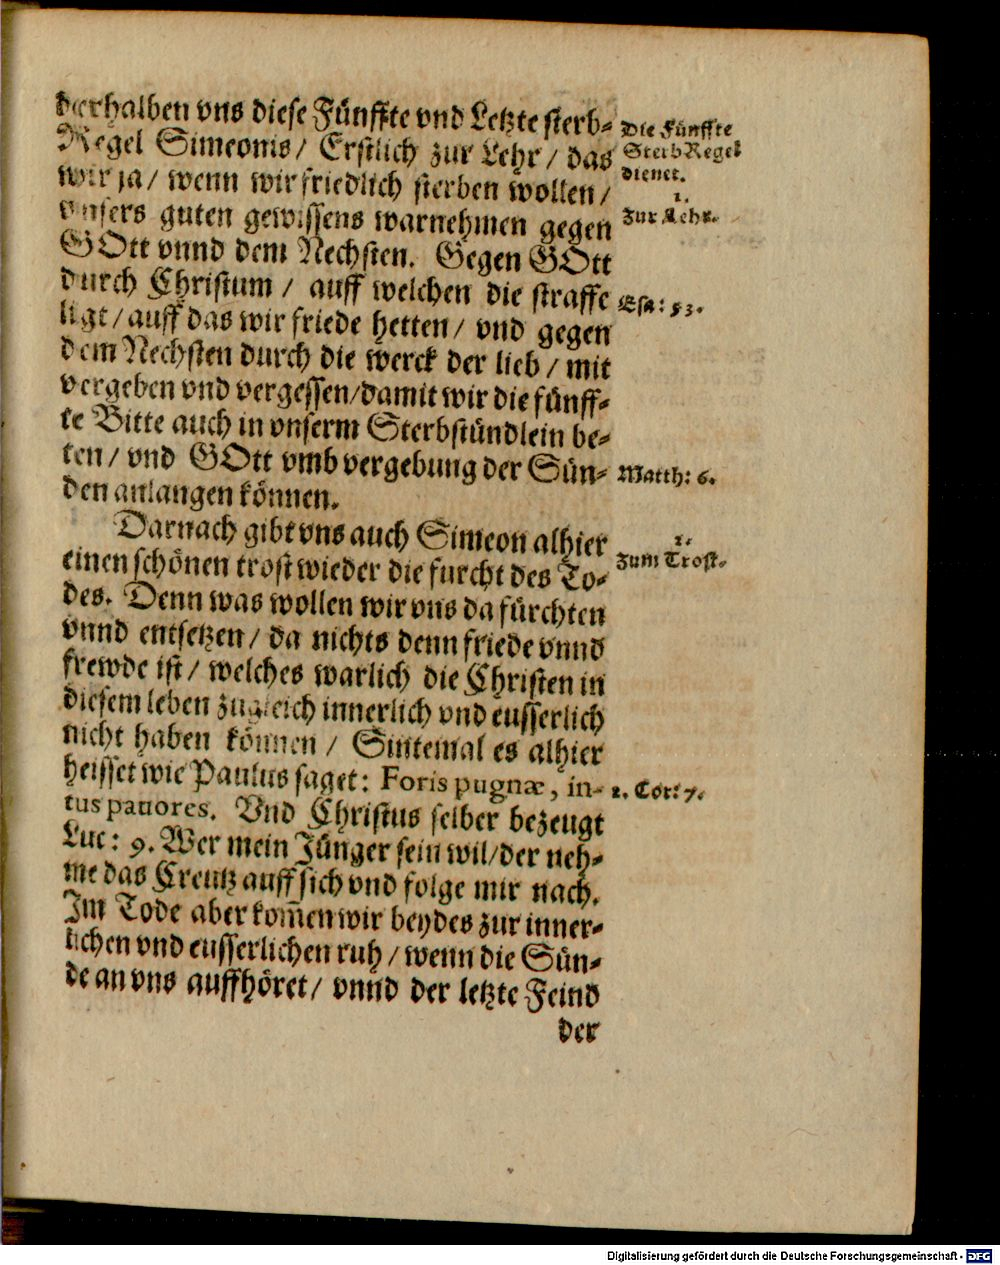 derhalben vns diese Fünffte vnd Letzte sterb-
Regel Simeonis/ Erstlich zur Lehr/ das
wir ja/ wenn wir friedlich sterben wollen/
vnsers guten gewissens warnehmen gegen
GOtt vnnd dem Nechsten. Gegen GOtt
durch Christum/ auff welchen die straffe
ligt/ auff das wir friede hetten/ vnd gegen
dem Nechsten durch die werck der lieb/ mit
vergeben vnd vergessen/ damit wir die fünff-
te Bitte auch in vnserm Sterbstündlein be-
ten/ vnd GOtt vmb vergebung der Sün-
den anlangen können.
Darnach gibt vns auch Simeon alhier
einen schönen trost wieder die furcht des To-
des. Denn was wollen wir vns da fürchten
vnnd entsetzen/ da nichts denn friede vnnd
frewde ist/ welches warlich die Christen in
diesem leben zugleich innerlich vnd eusserlich
nicht haben können/ Sintemal es alhier
heisset wie Paulus saget: Foris pugnæ, in-
tus pauores. Vnd Christus selber bezeugt
Luc: 9. Wer mein Jünger sein wil/ der neh-
me das Creutz auff sich vnd folge mir nach.
Im Tode aber kom̃en wir beydes zur inner-
lichen vnd eusserlichen ruh/ wenn die Sün-
de an vns auffhöret/ vnnd der letzte Feind
der
Die Fünffte
Sterb Regel
dienet.
1.
Zur Lehr.
Esa: 53.
Matth: 6.
2.
Zum Trost.
2. Cor: 7.
Digitalisierung gefördert durch die Deutsche Forschungsgemeinschaft - DFG